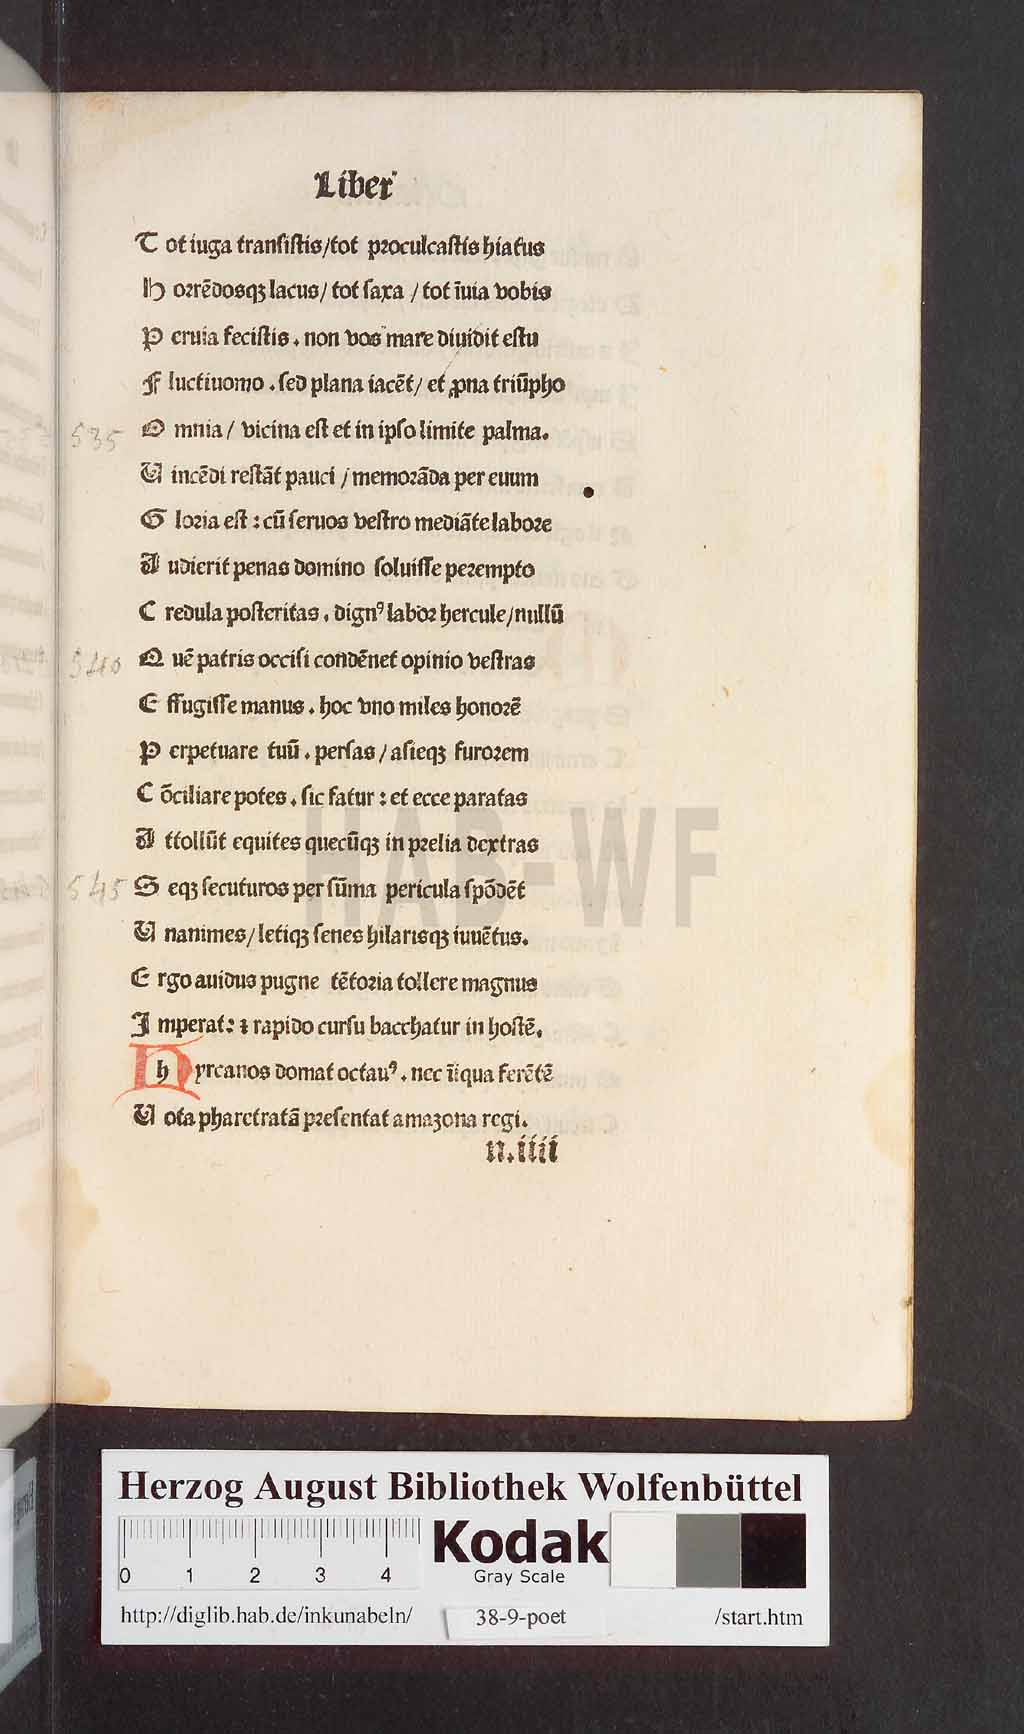 Liber
T ot iuga transistis/tot proculcastis hiatus
H orrēdosqꝫ lacus/ tot saxa / tot īuia vobis
P eruia fecistis . non vos mare diuidit estu
F luctiuomo . sed plana iacēt/ et ꝓna triūpho
535 O mnia/ vicina est et in ipso limite palma.
U incēdi restāt pauci / memorāda per euum
G loria est : cū seruos vestro mediāte labore
A udierit penas domino soluisse perempto
C redula posteritas . dignꝰ labor hercule/nullū
540 Q uē patris occisi condēnet opinio vestras
E ffugisse manus . hoc vno miles honorē
P erpetuare tuū . persas / asieqꝫ furorem
C ōciliare potes . sic fatur : et ecce paratas
A ttollūt equites quecūqꝫ in prelia dextras
545 S eqꝫ secuturos per sūma pericula spōdēt
U nanimes/ letiqꝫ senes hilarisqꝫ iuuētus.
E rgo auidus pugne tētoria tollere magnus
I mperat: ꝛ rapido cursu bacchatur in hostē.
H yrcanos domat octauꝰ . nec īiqua ferētē
U ota pharetratā presentat amazona regi.
n.iiii
HAB-WF
Herzog August Bibliothek Wolfenbüttel
0 1 2 3 4
Kodak
Gray Scale
http://diglib.hab.de/inkunabeln/ 38-9-poet /start.htm